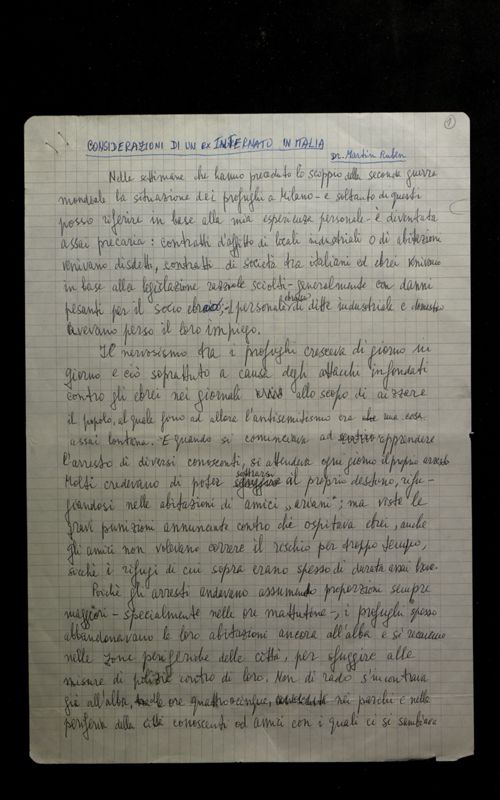 1
CONSIDERAZIONI DI UN ex INTERNATO IN ITALIA
Dr. Martin Ruben
Nelle settimane che hanno preceduto lo scoppio della seconda guerra
mondiale la situazione dei profughi a Milano - e soltanto di questi
posso riferire in base alla mia esperienza personale - è diventata
assai precaria: contratti d'affitto di locali industriali o di abitazioni
venivano disdetti, contratti di società tra italiani ed ebrei venivano
in base alla legislazione razziale sciolti - generalmente con danni
pesanti per il socio ebraico; - il personale ebraico di ditte industriale e domestico
avevano perso il loro impiego.
Il nervosismo tra i profughi cresceva di giorno in
giorno e ciò soprattutto a causa degli attacchi infondati
contro gli ebrei nei giornali allo scopo di aizzare
il popolo, al quale fino ad allora l'antisemitismo era una cosa
assai lontana. E quando si cominciava ad apprendere
l'arresto di diversi conoscenti, si attendeva ogni giorno il proprio arresto
Molti credevano di poter sottrarsi il proprio destino, rifu-
giandosi nelle abitazioni di amici "ariani"; ma viste le
gravi punizioni annunciate contro chi ospitava ebrei, anche
gli amici non volevano correre il rischio per troppo tempo,
sicché i rifugi di cui sopra erano spesso di durata assai breve.
Poiché gli arresti andavano assumendo proporzioni sempre
maggiori - specialmente nelle ore mattutine -, i profughi spesso
abbandonavano le loro abitazioni ancora all'alba e si recavano
nelle zone periferiche delle città, per sfuggire alle
misure di polizia contro di loro. Non di rado s'incontrava
già all'alba, alle ore quattro-cinque, nei parchi e nella
periferia della città conoscenti od amici con i quali ci si scambiava